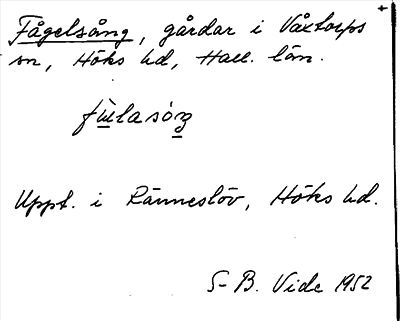 Fågelsång, gårdar i Våxtorps
sn, Höks hd, Hall. län.
fùlasóŋ
Uppt. i Ränneslöv, Höks hd.
S-B. Vide 1952